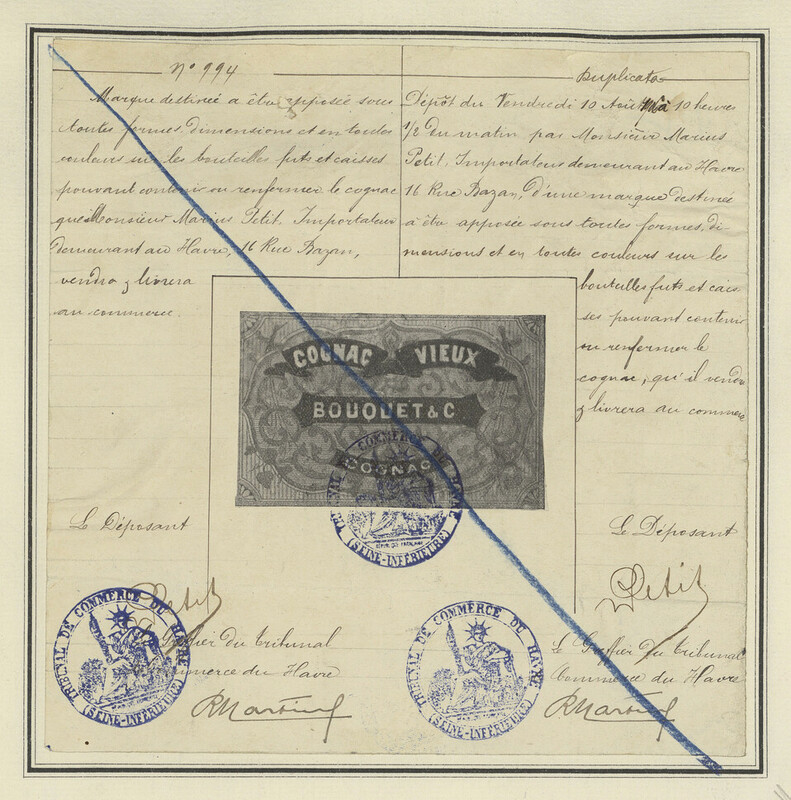 Nº 994
Marque destinée a être apposée sous
toutes formes, dimensions et en toutes
couleurs sur les bouteilles fûts et caisses
pouvant contenir ou renfermer le cognac
que Monsieur Marius Petit. Importateur
demeurant au Havre, 16 Rue Bazan,
vendra & livrera
au commerce.
Le Déposant
Petit
Greffier du tribunal
mmerce du Havre
Duplicata
Dépôt du Vendredi 10 Août à 10 heures
1/2 du matin par Monsieur Marius
Petit. Importateur demeurant au Havre
16 Rue Bazan, d'une marque destinée
à être apposée sous toutes formes, di
mensions et en toutes couleurs sur les
bouteilles fûts et cais
ses pouvant contenir
ou renfermer le
cognac, qu'il vendra
& livrera au commerce
Le Déposant
Petit
Le Greffier du tribunal
Commerce du Havre
COGNAC VIEUX
BOUQUET & C
COGNAC
TRIBUNAL DE COMMERCE DU HAVRE
(SEINE-INFÉRIEURE)
TRIBUNAL DE COMMERCE DU HAVRE
(SEINE-INFÉRIEURE)
TRIBUNAL DE COMMERCE DU HAVRE
(SEINE-INFÉRIEURE)